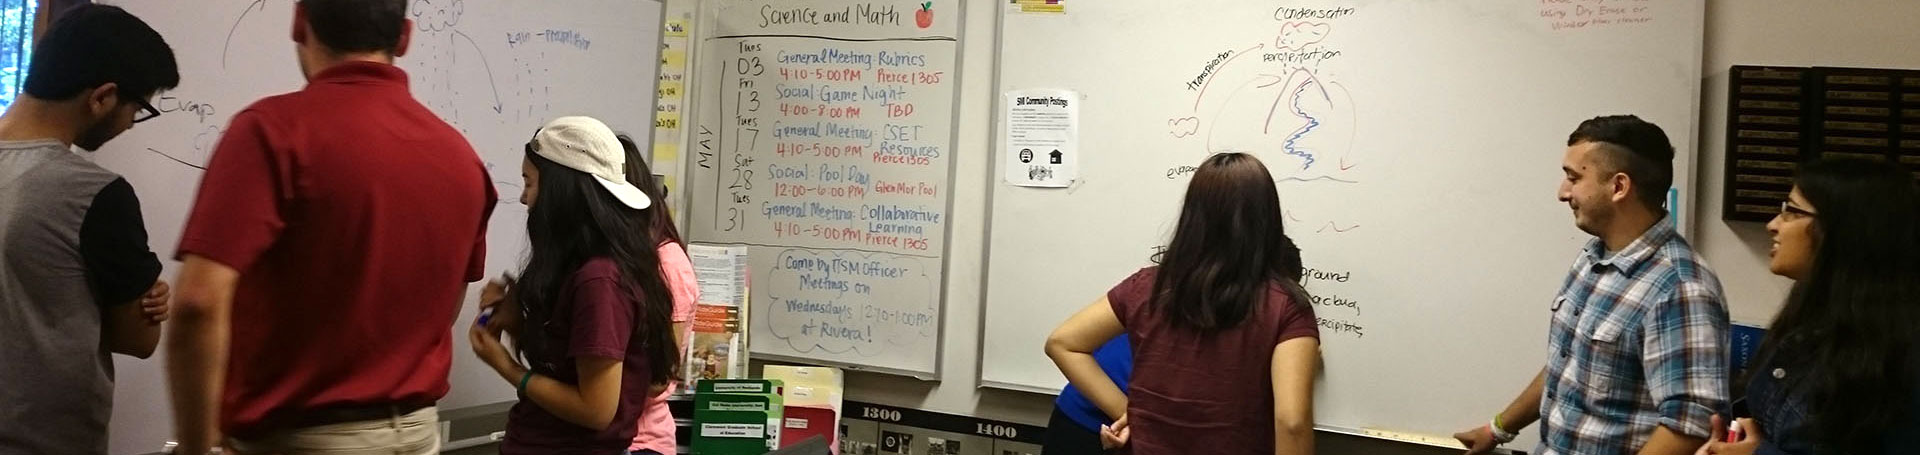 Evap
Rain - Precipitation
Science and Math
MAY
Tues
03 General Meeting: Rubrics
4:10-5:00 PM Pierce 1305
Fri
13 Social: Game Night
4:00-8:00 PM TBD
Tues
17 General Meeting: CSET
Resources
4:10-5:00 PM Pierce 1305
Sat
28 Social: Pool Day
12:00-6:00 PM Glen Mor Pool
Tues
31 General Meeting: Collaborative
Learning
4:10-5:00 PM Pierce 1305
Come by TTSM Officer
Meetings on
Wednesdays 12:10-1:00 PM
at Rivera!
SMI Community Postings
Condensation
percipitation
transpiration
evap
ground
a cloud,
ercipitates
using Dry Erase or
University of Redlands
Claremont Graduate School
of Education
1300
1400
SAXON